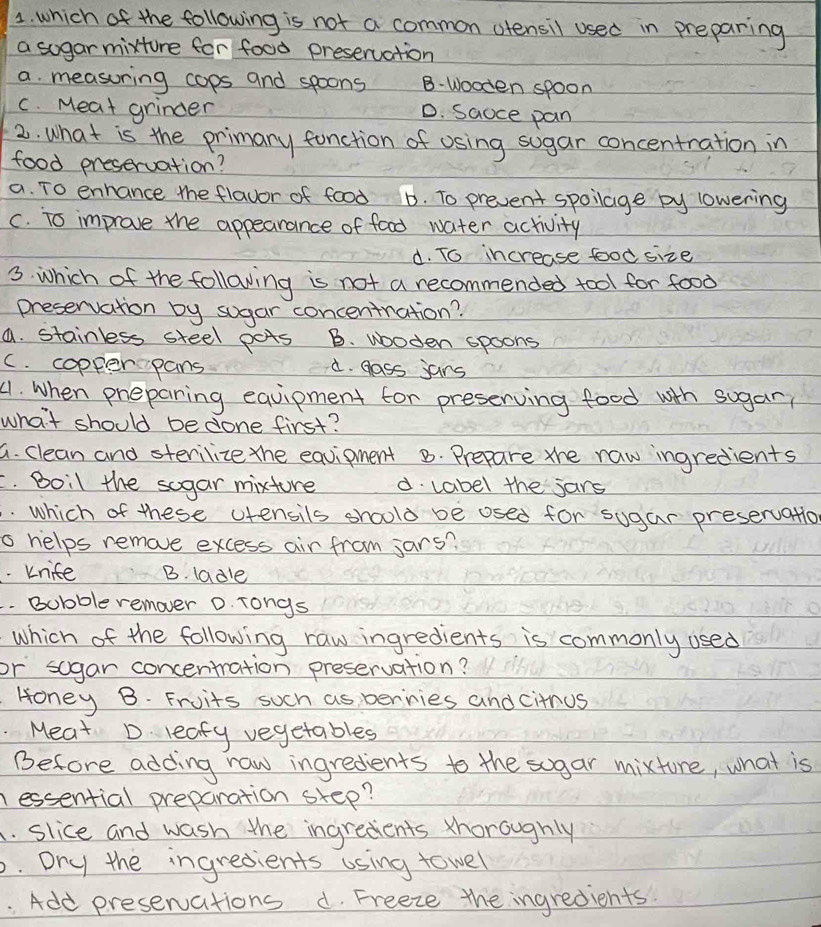 1. which of the following is not a common utensil used in preparing
a sugar mixture for food preservation
a. measuring cops and spoons B-Wooden spoon
C. Meat grinder D. Sauce pan
2. What is the primary function of using sugar concentration in
food preservation?
a. To enhance the flavor of food b. To prevent spoilage by lowering
C. To improve the appearance of food water activity
d. To increase food size
3. which of the following is not a recommended tool for food
preservation by sugar concentration?
a. stainless steel pots B. Wooden spoons
C. copper pans d. gass jars
4. When preparing equipment for preserving food with sugar,
what should be done first?
a. clean and sterilize the equipment B. Prepare the raw ingredients
C. Boil the sugar mixture d. Label the jars
. which of these utensils should be used for sugar preservatio
o helps remove excess air from jars?
. Knife B. ladle
. Bubble remover D. Tongs
which of the following raw ingredients is commonly used
or sugar concentration preservation?
. Honey B. Fruits such as berries and citrus
. Meat D. leafy vegetables
Before adding raw ingredients to the sugar mixture, what is
n essential preparation step?
. Slice and wash the ingredients thoroughly
. Dry the ingredients using towel
. Add preservations d. Freeze the ingredients.